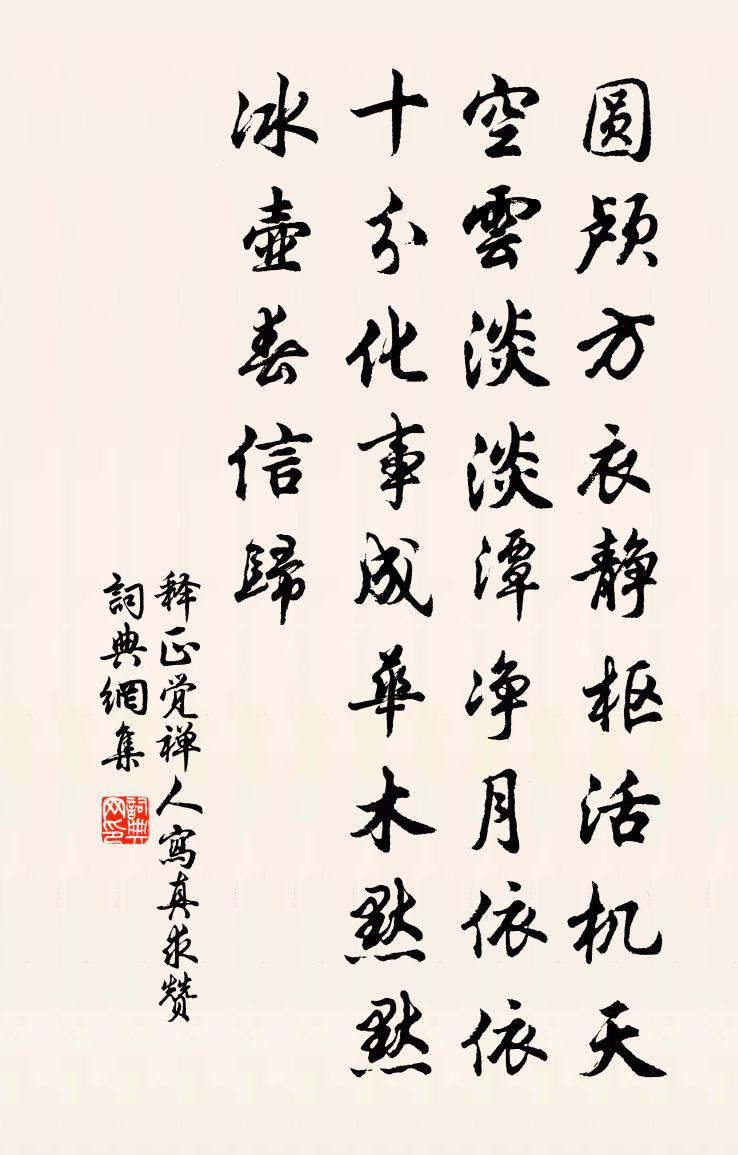 圆颅方衣静枢活机天
空雲淡淡潭净月依依
十分化事成華木默默
冰壺春信歸
释正觉禅人寫真求赞
詞典網集
詞典网印